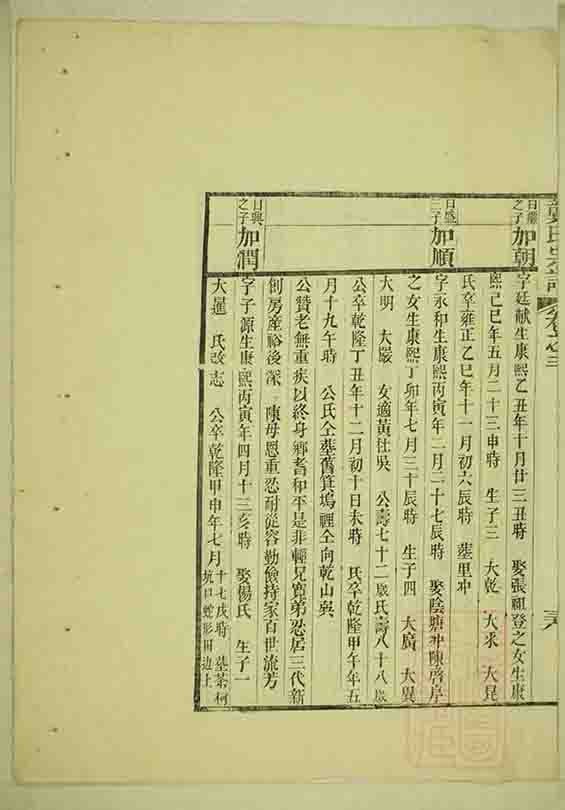 氏宗譜 卷之三
日 之子 加朝 字廷献生康熙乙丑年十月廿三丑時 娶張祖登之女生康
熙己巳年五月二十三申時 生子三 大乾 大求 大昆
氏卒雍正乙巳年十一月初六辰時 塟里冲
日盛三子 加順 字永和生康熙丙寅年二月二十七辰時 娶陰塘冲陳啓厚
之女生康熙丁卯年七月三十辰時 生子四 大廣 大異
大明 大嚴 女適黃仕吳 公壽七十二歲氏壽八十八歲
公卒乾隆丁丑年十二月初十日未時 氏卒乾隆甲午年五
月十九午時 公氏仝塟舊箕塢裡仝向乾山巽
公贊老無重疾以終身鄉耆和平是非輕兄寬弟忍居三代新
創房産裕後深 陳母恩重忍耐從容勤儉持家百世流芳
日興之子 加潤 字子源生康熙丙寅年四月十三亥時 娶楊氏 生子一
大暹 氏改志 公卒乾隆甲申年七月十七戌時 塟茶柯坑口蛇形田边上